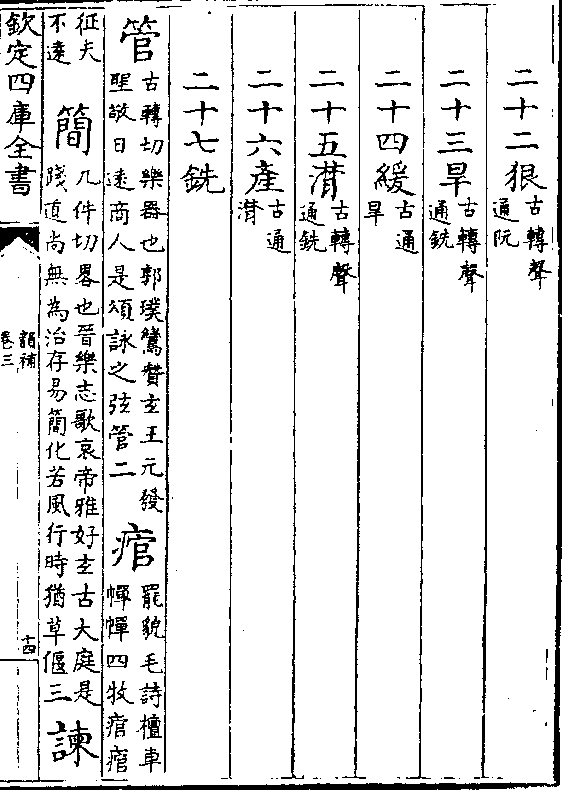 二十二狠古轉聲通阮
二十三旱古轉聲通銑
二十四緩古通旱
二十五潸古轉聲通銑
二十六產古通潸
二十七銑
管古轉切樂器也郭璞鸞贊玄王元發聖敬日遠商人是頌詠之弦管二 痯罷貌毛詩檀車幝幝四牡痯痯
征夫不遠 簡几件切畧也晉樂志歌哀帝雅好玄古大庭是踐道尚無為治存易簡化若風行時猶草偃三 諫
欽定四庫全書
韻補
卷三
十四